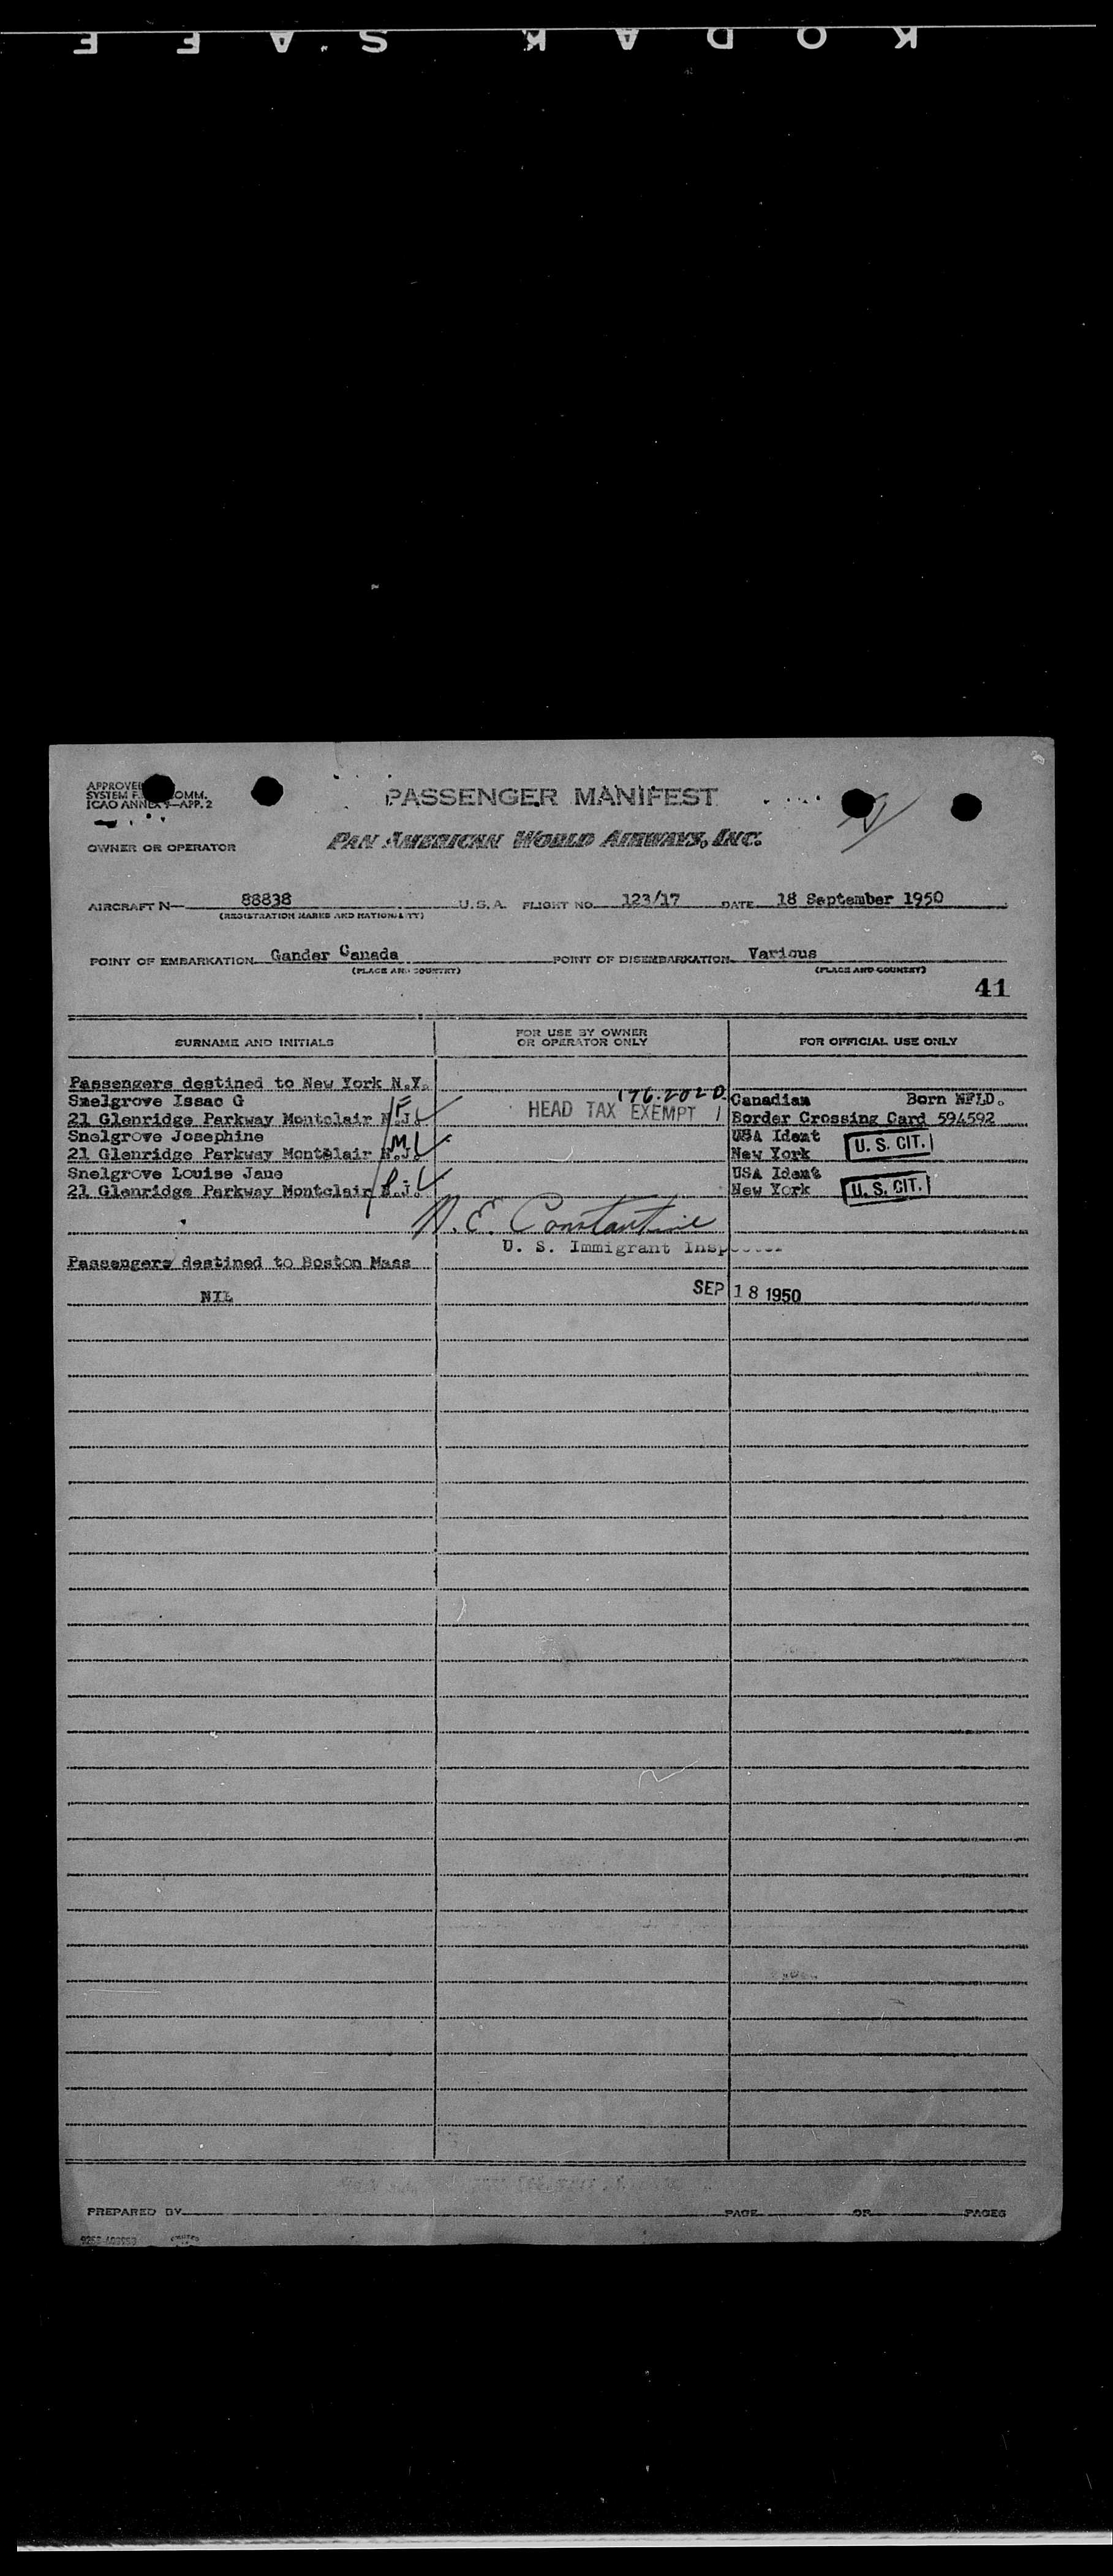 KODAK SAFE
APPROVE OMM.
SYSTEM F
ICAO ANNEX 9—APP. 2
PASSENGER MANIFEST
OWNER OR OPERATOR
PAN AMERICAN WORLD AIRWAYS, INC.
AIRCRAFT N— 88838 U.S.A. FLIGHT NO. 123/17 DATE 18 September 1950
(REGISTRATION MARKS AND NATIONALITY)
POINT OF EMBARKATION Gander Canada POINT OF DISEMBARKATION Various
(PLACE AND COUNTRY) (PLACE AND COUNTRY)
41
SURNAME AND INITIALS FOR USE BY OWNER OR OPERATOR ONLY FOR OFFICIAL USE ONLY
Passengers destined to New York N.Y.
Snelgrove Issac G 176.202D. Canadian Born NFLD.
21 Glenridge Parkway Montclair N.J. F HEAD TAX EXEMPT 1 Border Crossing Card 594592
Snelgrove Josephine USA Ident U. S. CIT.
21 Glenridge Parkway Montclair N.J. M New York
Snelgrove Louise Jane USA Ident
21 Glenridge Parkway Montclair N.J. New York U. S. CIT.
N. E. Constantine
U. S. Immigrant Inspector
Passengers destined to Boston Mass
NIL SEP 18 1950
PREPARED BY PAGE OF PAGES